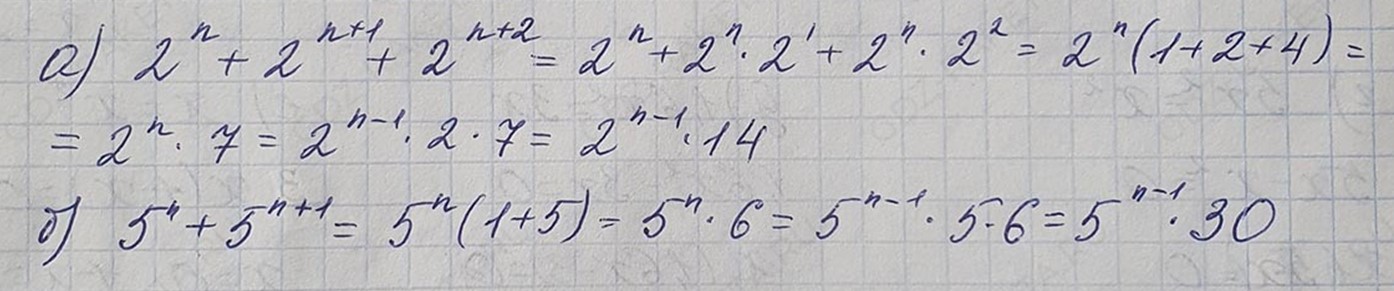 а) 2ⁿ + 2ⁿ⁺¹ + 2ⁿ⁺² = 2ⁿ + 2ⁿ · 2¹ + 2ⁿ · 2² = 2ⁿ (1+2+4) =
= 2ⁿ · 7 = 2ⁿ⁻¹ · 2 · 7 = 2ⁿ⁻¹ · 14
б) 5ⁿ + 5ⁿ⁺¹ = 5ⁿ (1+5) = 5ⁿ · 6 = 5ⁿ⁻¹ · 5 · 6 = 5ⁿ⁻¹ · 30